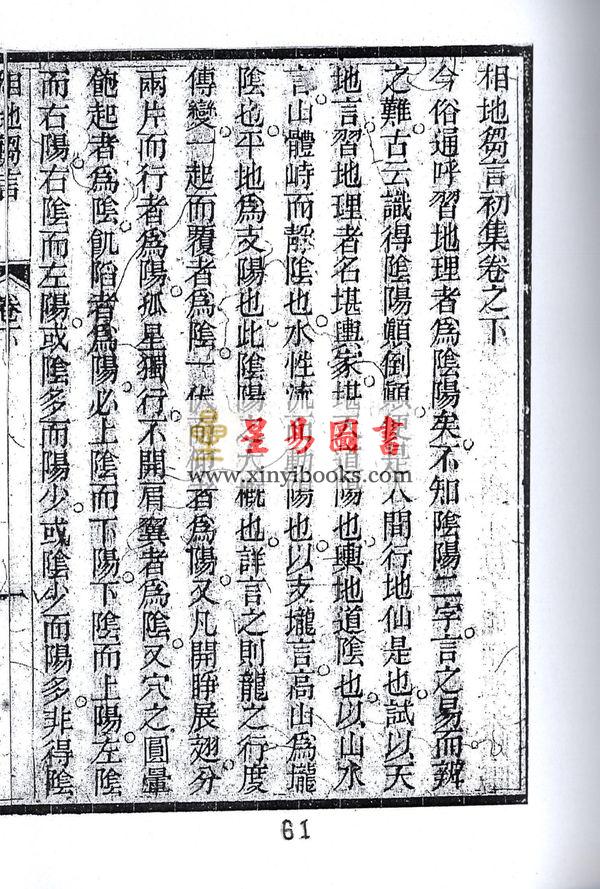 相地芻言初集卷之下
今俗通呼習地理者為陰陽矣不知陰陽二字言之易而辨
之難古云識得陰陽顛倒顛 人間行地仙是也試以天
地言習地理者名堪輿家堪 道陽也輿地道陰也以山水
言山體峙而靜陰也水性流 動陽也以支壠言高山為壠
陰也平地為支陽也此陰陽 大概也詳言之則龍之行度
傳變一起而覆者為陰一伏 者為陽又凡開睜展翅分
兩片而行者為陽孤星獨行不開肩翼者為陰又穴之圓暈
飽起者為陰飢陷者為陽必上陰而下陽下陰而上陽左陰
而右陽右陰而左陽或陰多而陽少或陰少而陽多非得陰
相地芻言
卷下
一
星易圖書
www.xinyibooks.com
61